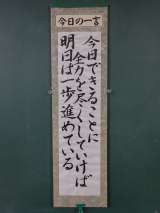 今日の一言
今日できることに
全力を尽くしていけば
明日は一歩進めている